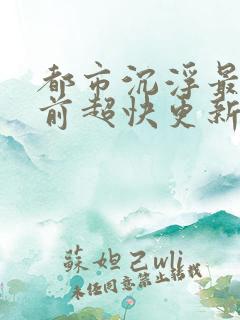 都市沉浮最
前超快更新
蘇妲己wli
未经同意禁止转载